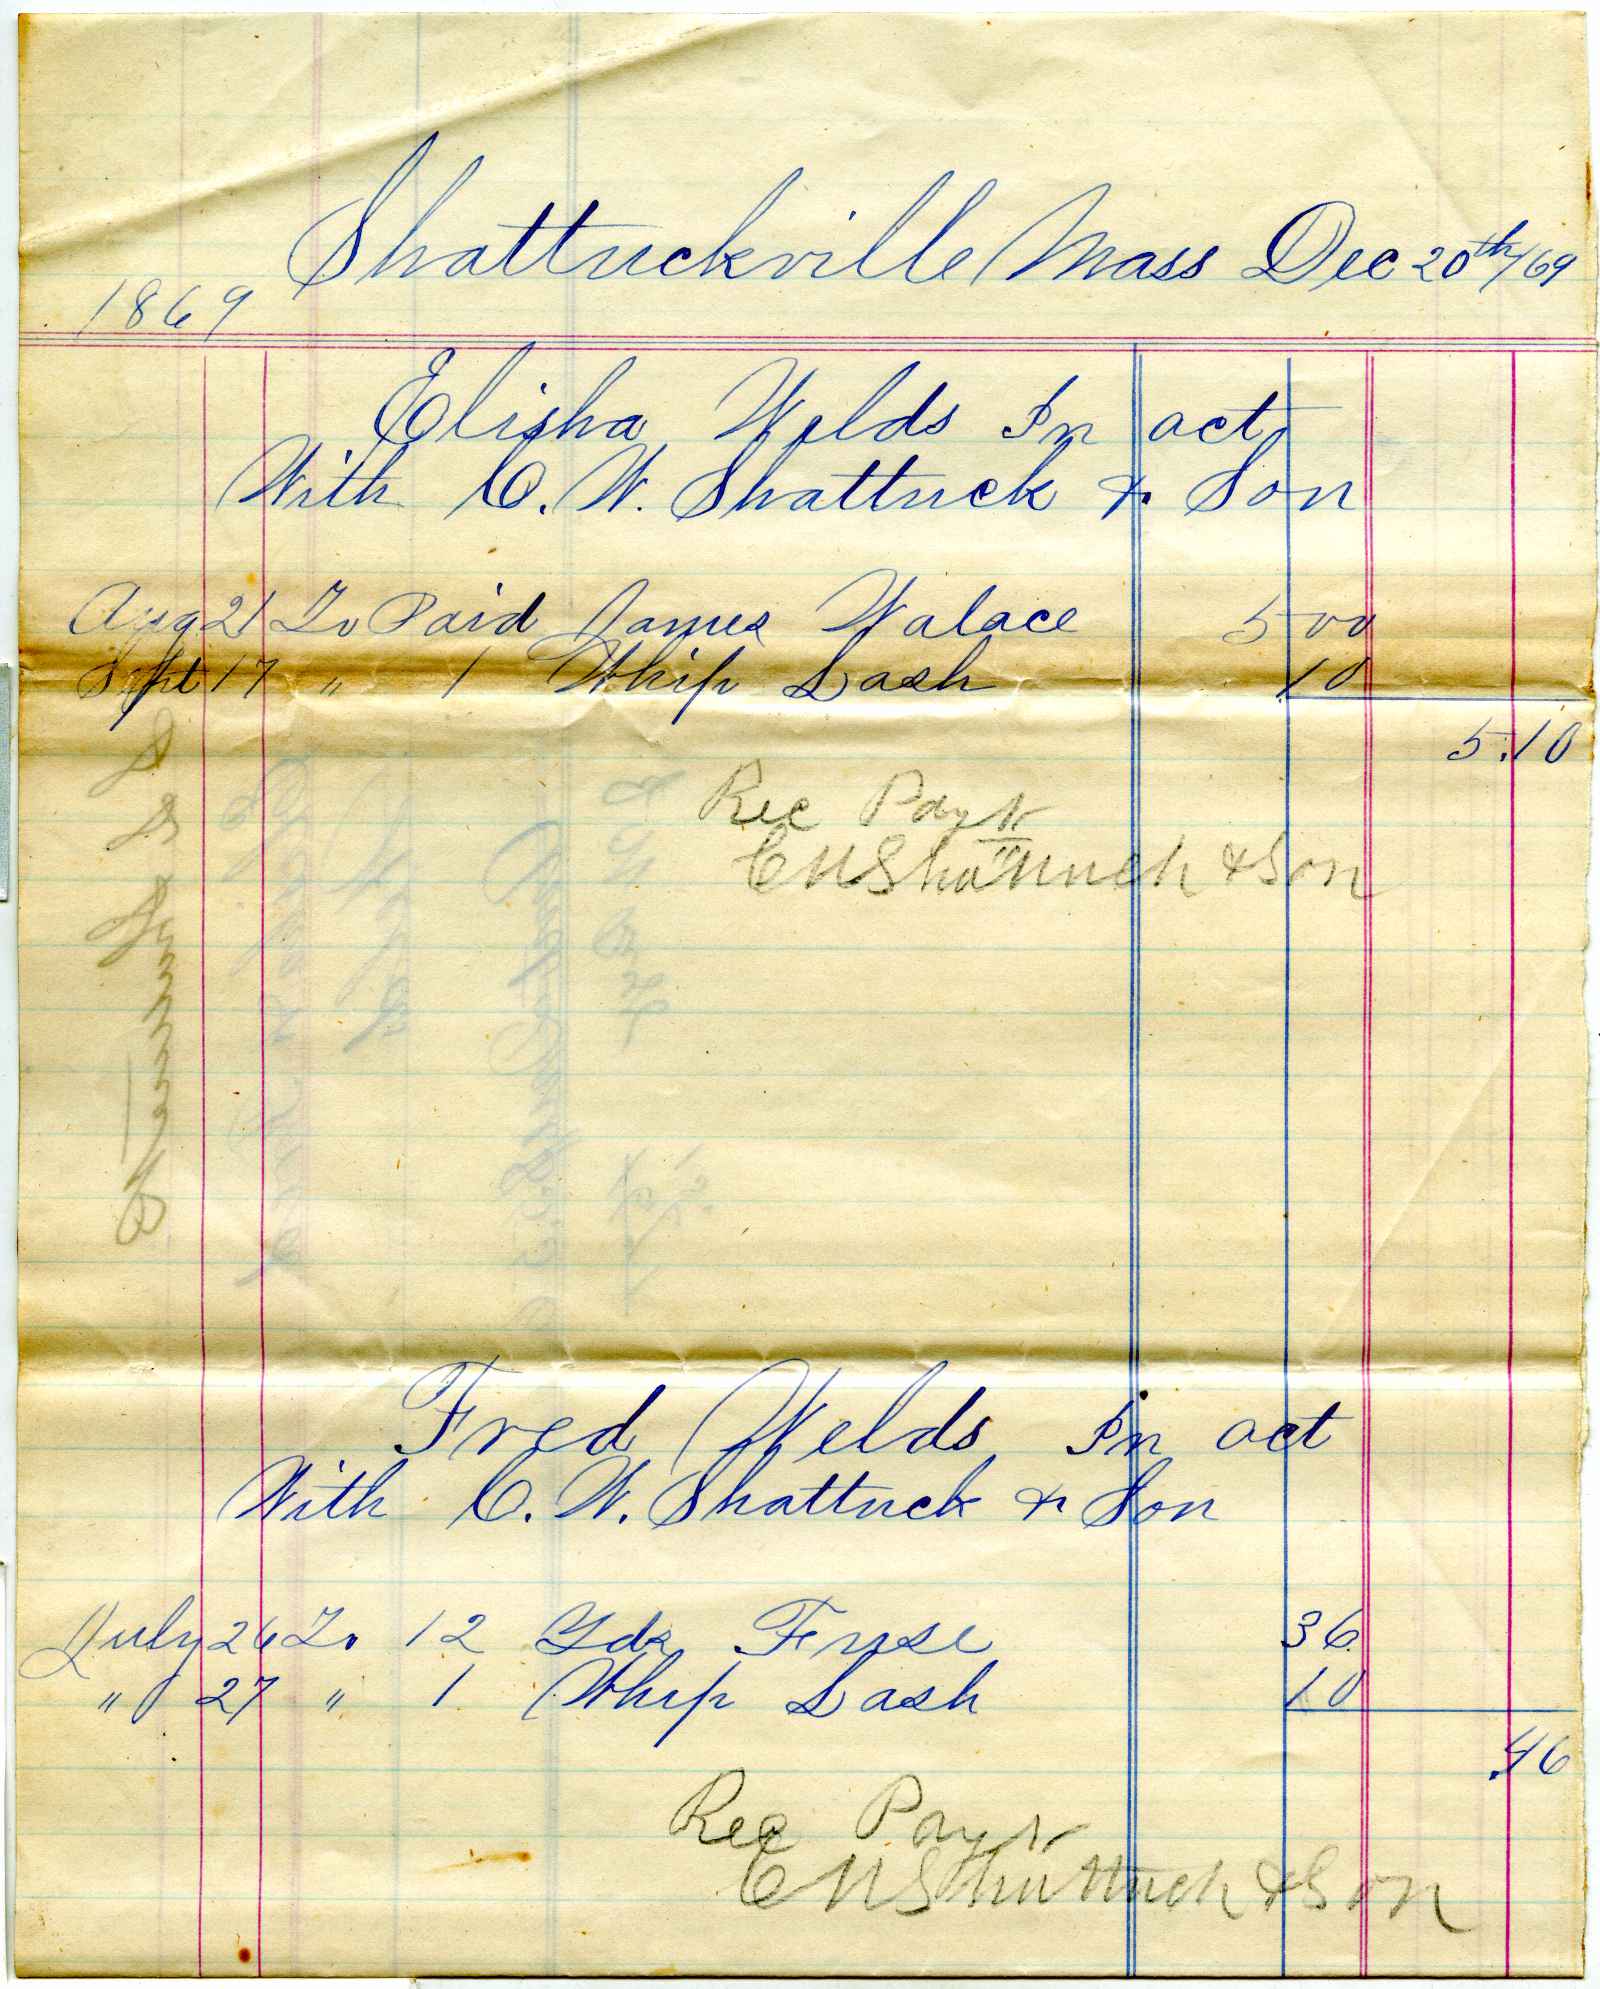 Shattuckville Mass Dec 20th/69
1869
Elisha Welds In act
With C. W. Shattuck & Son
Aug 21 To Paid James Walace 5 00
Sept 17 " 1 Whip Lash 10
5.10
Rec Payt
C W Shattuck & Son
Fred Welds In act
With C. W. Shattuck & Son
July 26 To 12 Yds Fuse 36
" 27 " 1 Whip Lash 10
.46
Rec Payt
C W Shattuck & Son